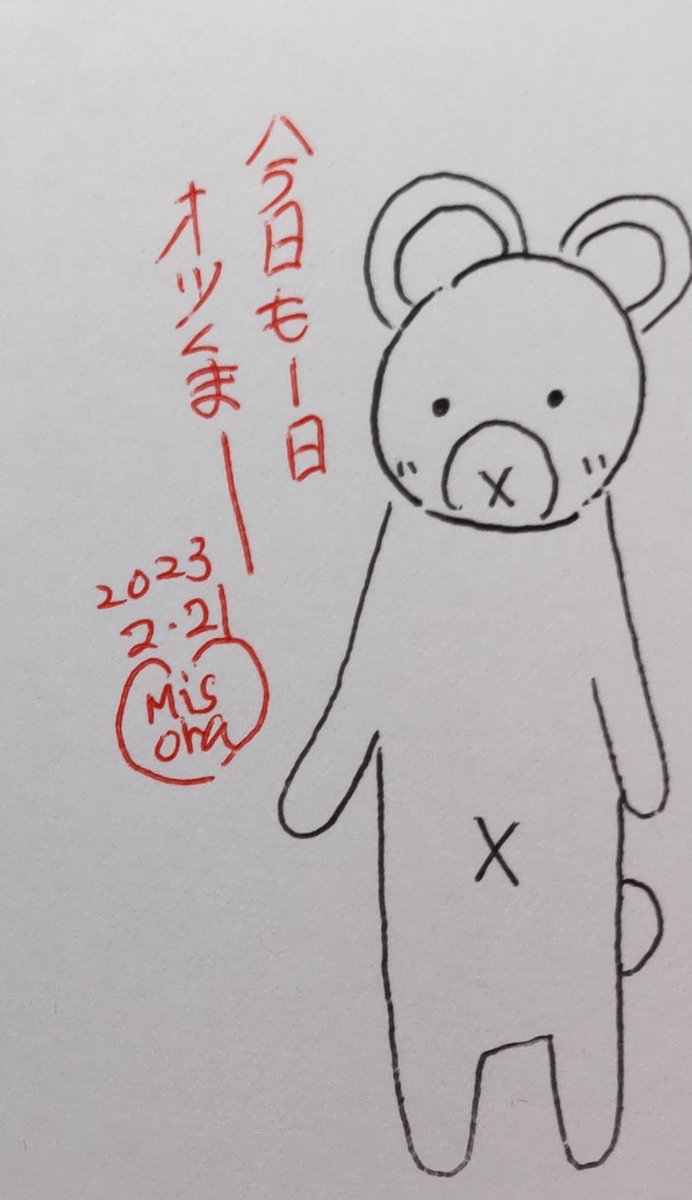 今日も一日
オツくまー
2023
2.21
Mis
ora